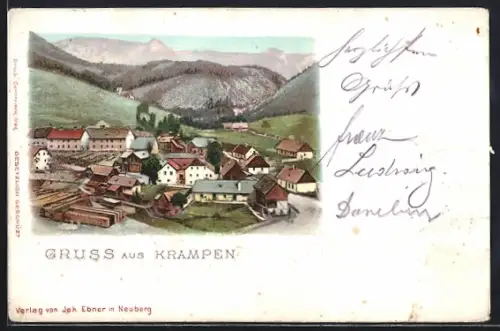 herzlichsten
Gruß
Franz
Ludwig
GRUSS AUS KRAMPEN
Verlag von Joh. Ebner in Neuberg
GESETZLICH GESCHÜTZT